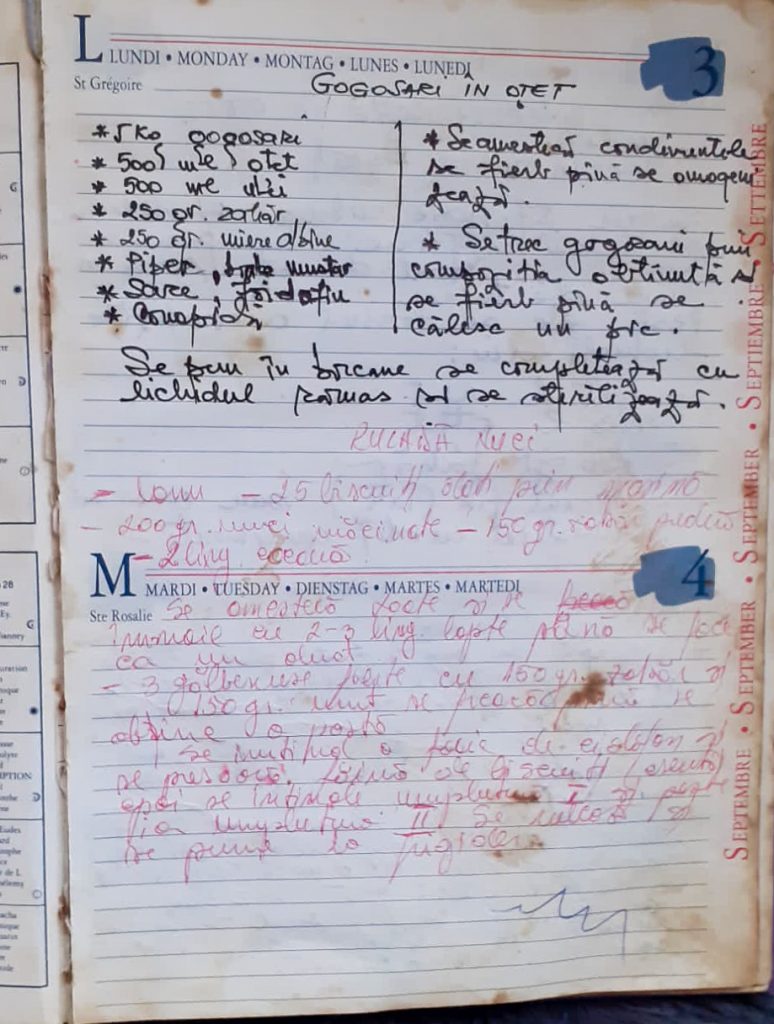 L LUNDI • MONDAY • MONTAG • LUNES • LUNEDÌ
3
St Grégoire
GOGOSARI ÎN OȚET
* 5 Kg gogosari
* 500 ml oțet
* 500 ml ulei
* 250 gr. zahăr
* 250 gr. miere albine
* Piper, boabe mustar
* Sare, foi dafin
* Conopidă
* Se amestecă condimentele
se fierb pînă se omogeni
zează.
* Se trec gogosarii prin
compoziția obținută și
se fierb pînă se
călesc un pic.
Se pun în borcane se completează cu
lichidul rămas și se sterilizează.
RULADĂ NUCI
- 25 biscuiți dați prin
- 200 gr. nuci măcinate - 150 gr. zahăr pudră
- 2 ling. cacao
M MARDI • TUESDAY • DIENSTAG • MARTES • MARTEDI
4
Ste Rosalie
Se amestecă toate și se
înmoaie cu 2-3 ling. lapte pînă se face
ca un aluat.
- 3 gălbenuse frește cu 150 gr. zahăr și
150 gr. unt se freacă pînă se
obține o pastă
Se întinde o foaie de celofan și
se presară făină de biscuiți
apoi se întinde umplutura I și peste
ea umplutura II. Se rulează și
se pune la frigider.
SEPTEMBRE • SEPTEMBER • SEPTEMBER • SEPTIEMBRE • SETTEMBRE